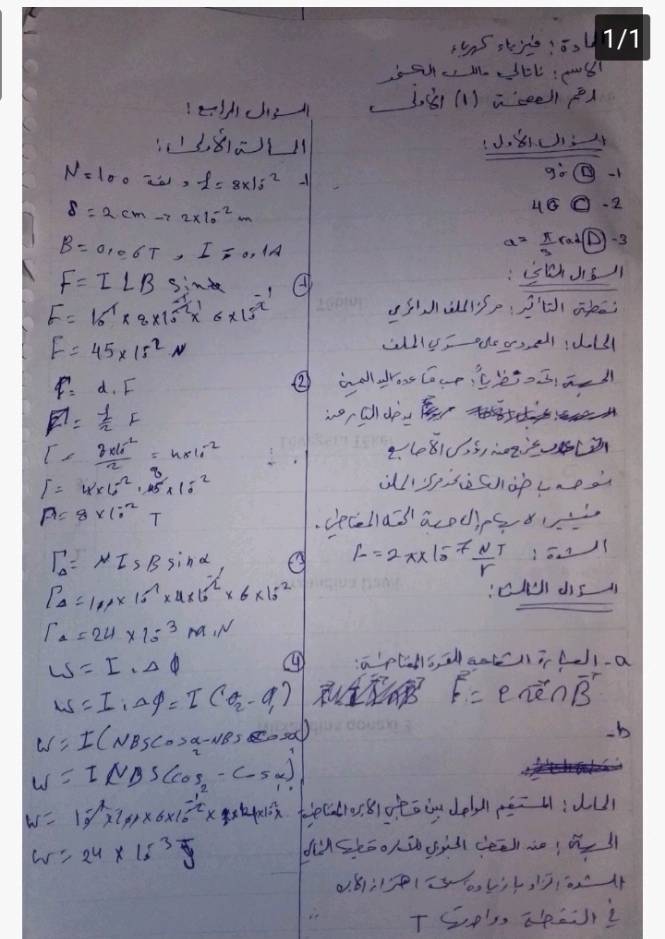 1/1
المادة: فيزياء كهرباء
الاسم: ناتالي مالك
رقم الصفحة (1) الأولى
السؤال الأول:
1- D 90
2- C 40
3- D a = π/3 rad
السؤال الثاني:
نقطة التأثير: مركز الملف الدائري
الحامل: العمودي على مستوي الملف
الجهة: تحدد نظرياً: حسب قاعدة اليد اليمنى
يدخل التيار من
يخرج من رؤوس الأصابع
نوجه باطن الكف نحو مركز الملف
فيشير الإبهام إلى جهة الحقل المغناطيسي.
الشدة: = 2π×10^-7 NI/r
السؤال الثالث:
a- العبارة الشعاعية للقوة المغناطيسية:
F = e v ∧ B
b-
الحامل: المستقيم الواصل بين قطبي الإبرة المغناطيسية
الجهة: من القطب الجنوبي للإبرة قطبها الشمالي
الشدة: تزداد بازدياد سرعة اهتزاز الإبرة
في النقطة وواحدتها T
السؤال الرابع:
المسألة الأولى:
1- N = 100 لفة , L = 8×10^-2
δ = 2 cm → 2×10^-2 m
B = 0,06 T , I = 0,1 A
① F = I L B sin α
F = 10^-1 × 8×10^-2 × 6×10^-2
F = 45×10^-2 N
② Γ = d. F
= L/2 F
Γ = 8×10^-2/2 = 4×10^-2
Γ = 4×10^-2
Γ = 8×10^-2 T
③ ΓΔ = N I s B sin α
ΓΔ = 100 × 10^-1 × 4×10^-2 × 6×10^-2
ΓΔ = 24 × 10^-3 m.N
④ W = I . Δφ
W = I . Δφ = I (φ2 - φ1)
W = I (NBS cos α2 - NBS cos α1)
W = I NBS (cos α2 - cos α1)
W = 24 × 10^-3 J